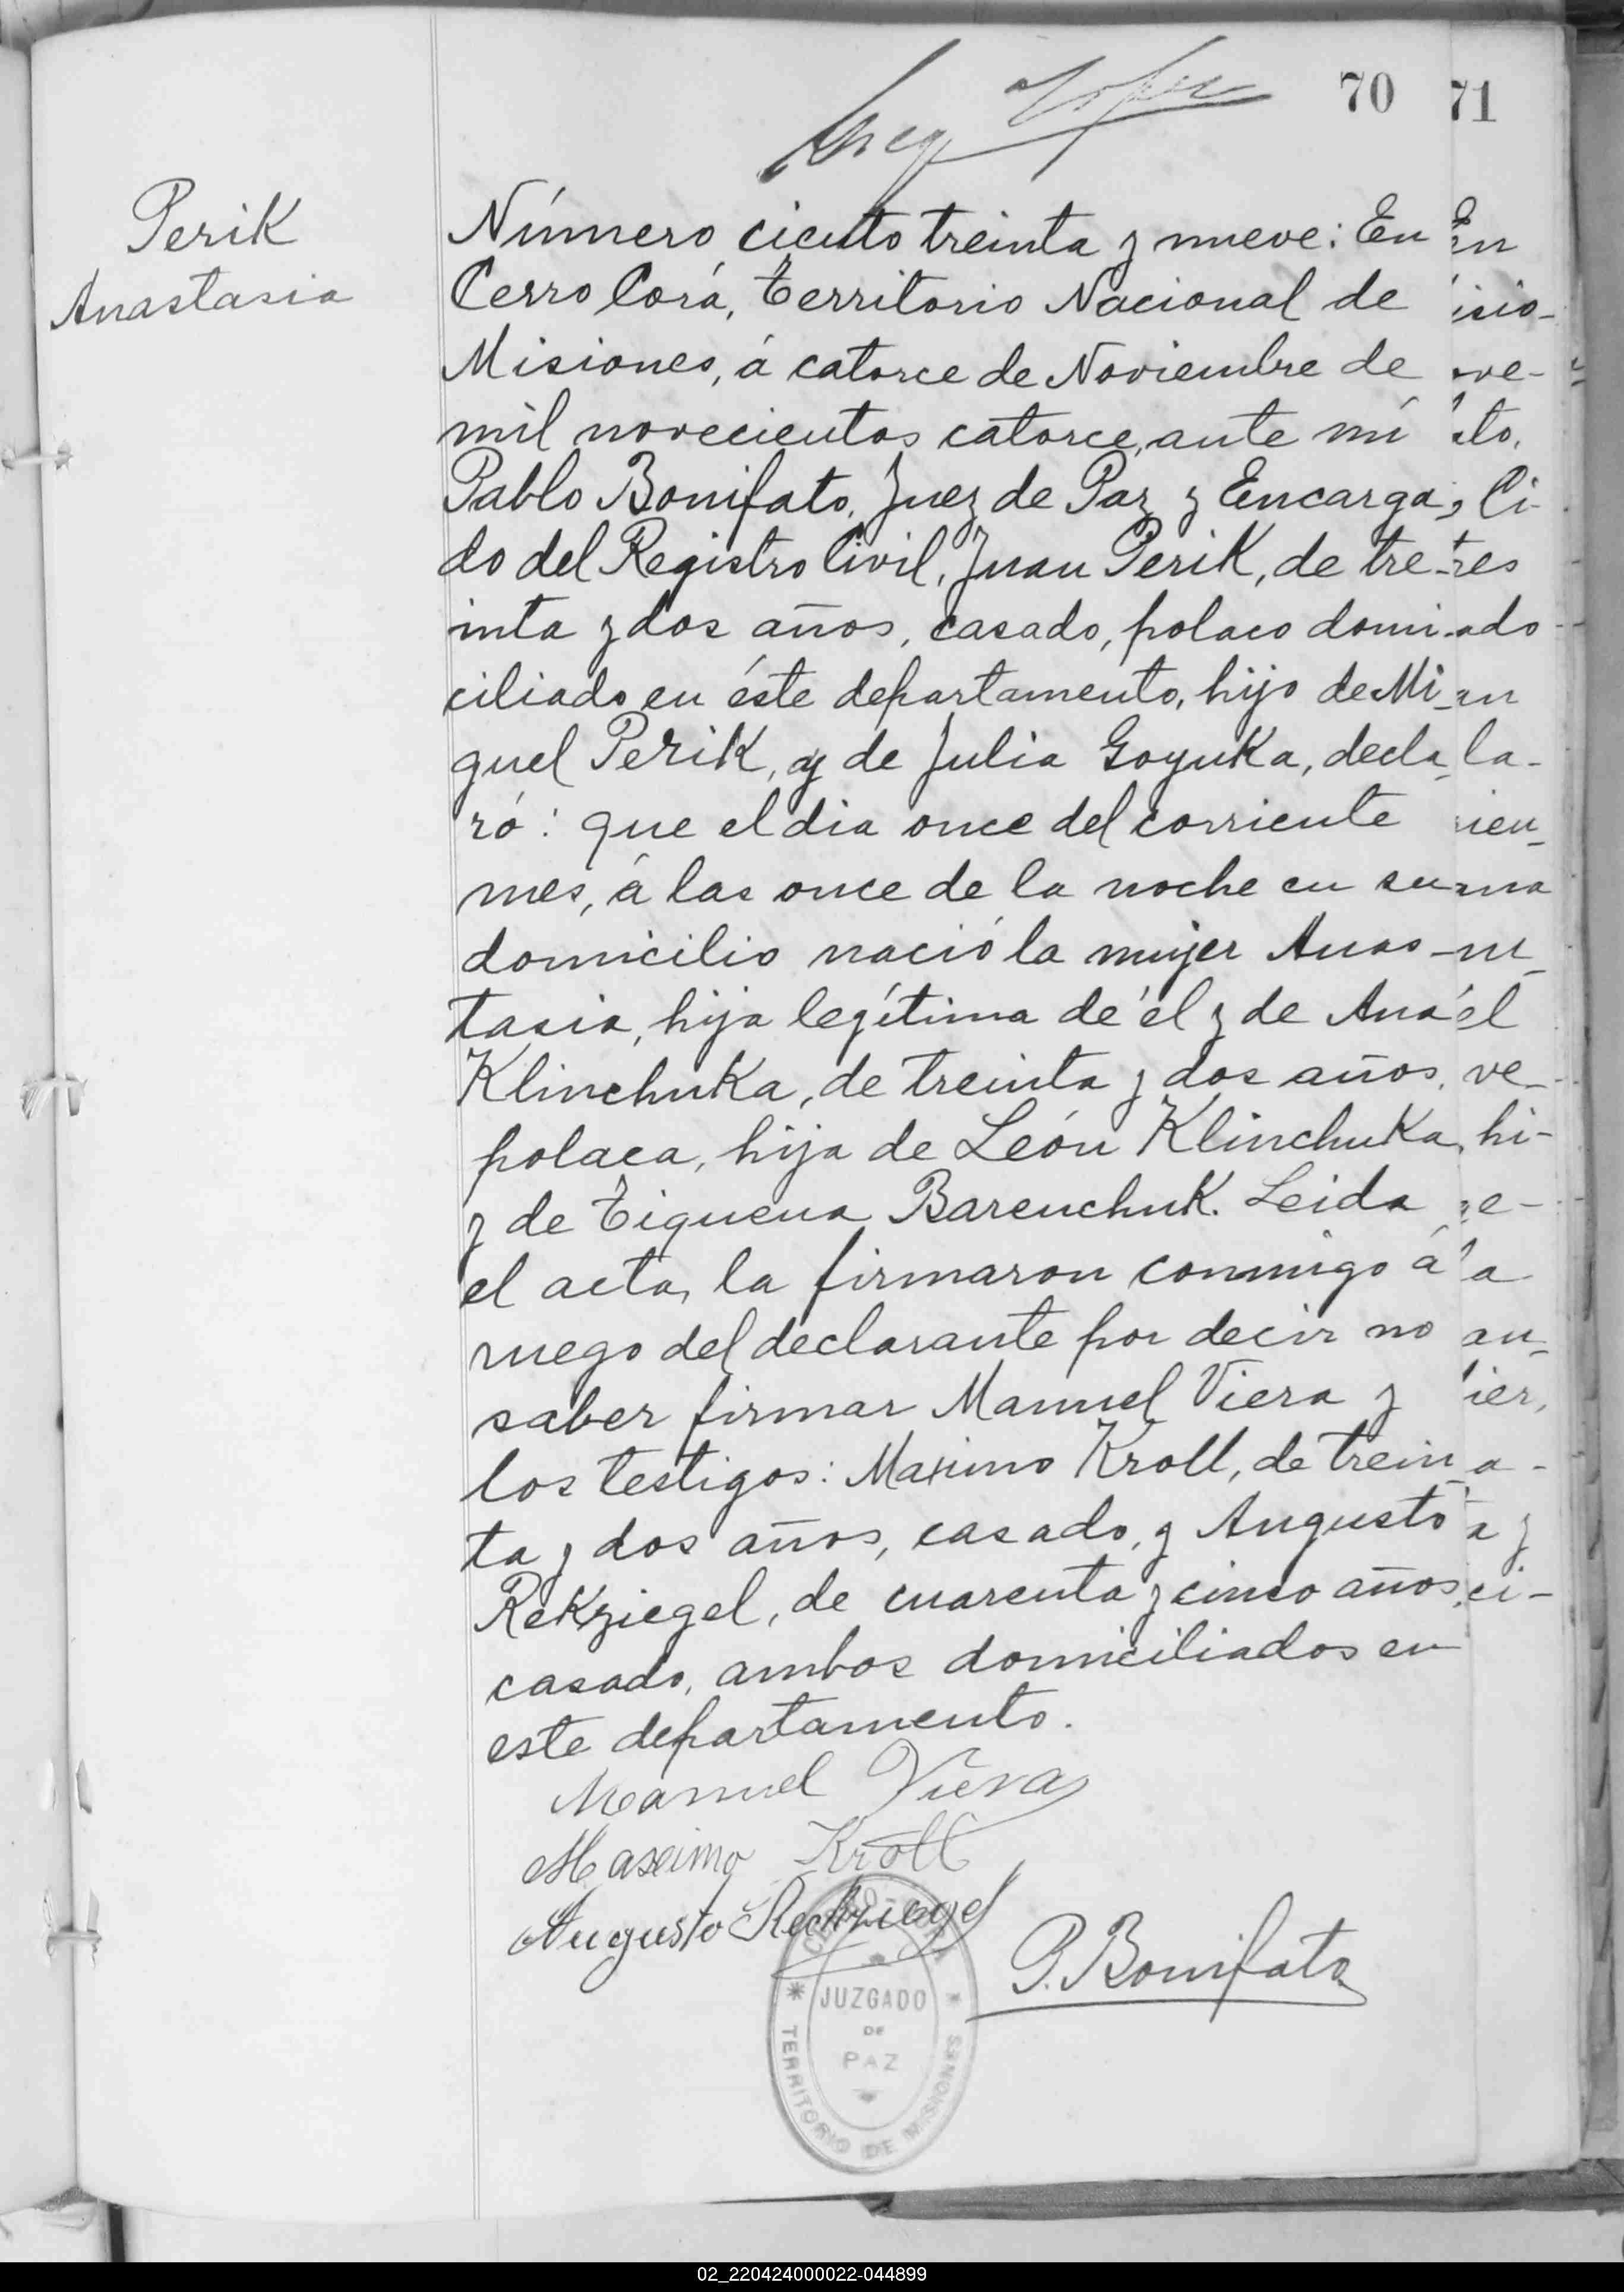 70 71
Perik
Anastasia
Número ciento treinta y nueve: En
Cerro Corá, Territorio Nacional de
Misiones, á catorce de Noviembre de
mil novecientos catorce, ante mí
Pablo Bonifato, Juez de Paz y Encarga
do del Registro Civil, Juan Perik, de tre-
inta y dos años, casado, polaco domi-
ciliado en éste departamento, hijo de Mi-
guel Perik, y de Julia Goyuka, decla-
ró: que el dia once del corriente
mes, á las once de la noche en su
domicilio nació la mujer Anas-
tasia, hija legítima de él y de Ana
Klinchuka, de treinta y dos años,
polaca, hija de León Klinchuka,
y de Tiquena Barenchuk. Leida
el acta, la firmaron conmigo á
ruego del declarante por decir no
saber firmar Manuel Viera y
los testigos: Maximo Kroll, de trein-
ta y dos años, casado, y Augusto
Rekziegel, de cuarenta y cinco años,
casado, ambos domiciliados en
este departamento.
Manuel Viera
Maximo Kroll
Augusto Reckziegel
P. Bonifato
CERRO-CORÁ
JUZGADO
DE
PAZ
TERRITORIO DE MISIONES
02_220424000022-044899